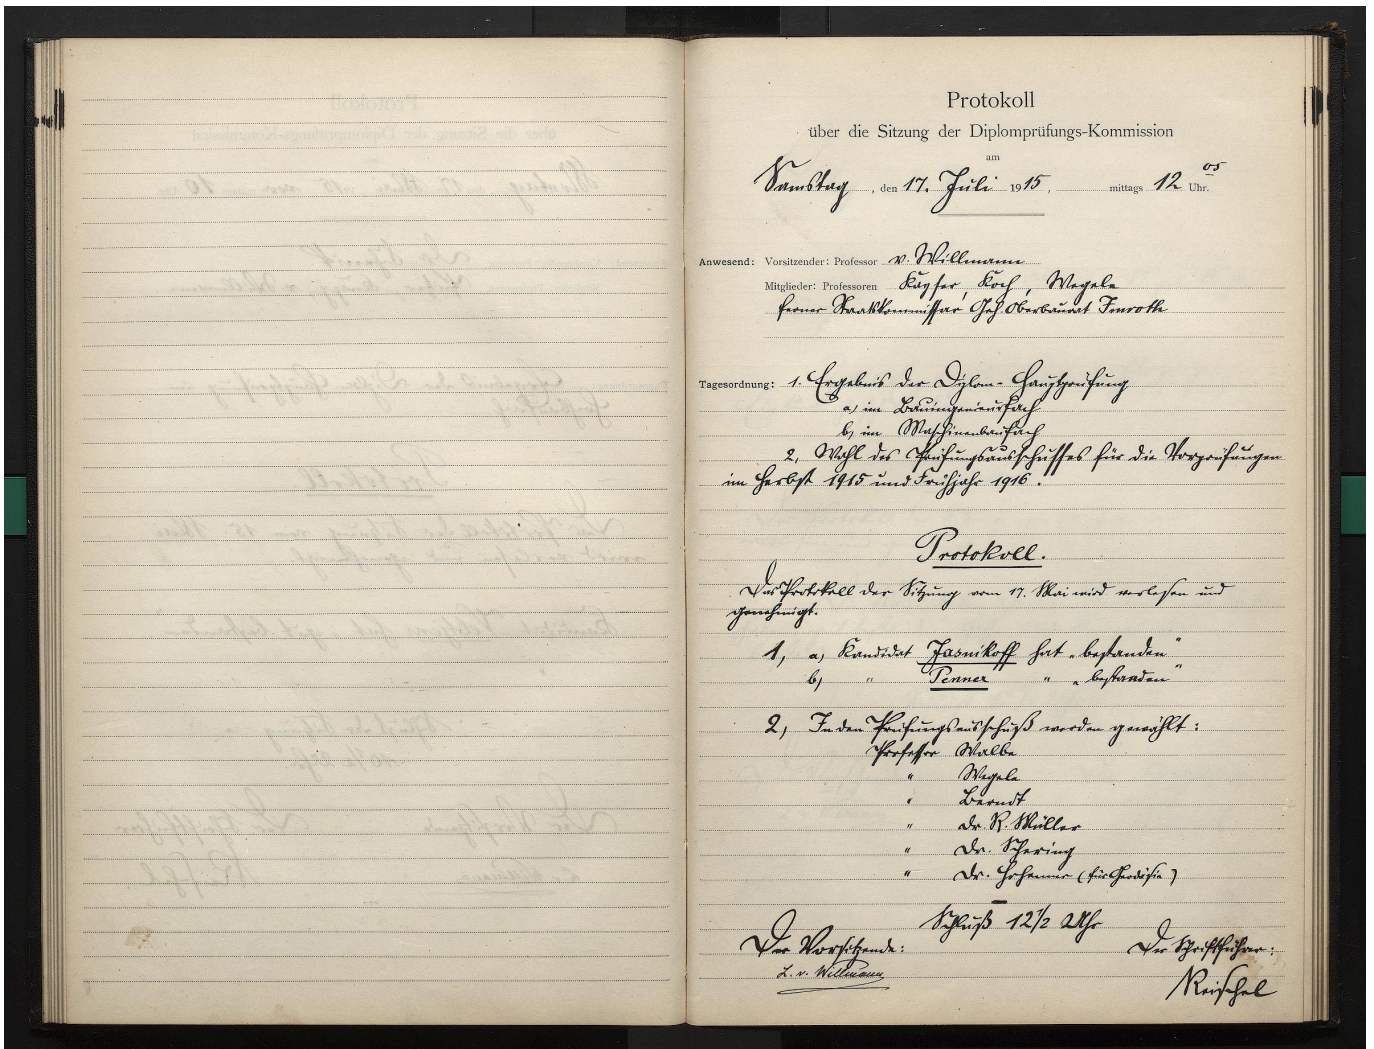 Protokoll
über die Sitzung der Diplomprüfungs-Kommission
am
Samstag, den 17. Juli 1915, mittags 12 05 Uhr.
Anwesend: Vorsitzender: Professor v. Willmann
Mitglieder: Professoren Kayser, Koch, Wegele
ferner Staatskommissar Geh. Oberbaurat Imroth
Tagesordnung: 1. Ergebnis der Diplom-Hauptprüfung
a, im Bauingenieurfach
b, im Maschinenbaufach
2, Wahl des Prüfungsausschusses für die Vorprüfungen
im Herbst 1915 und Frühjahr 1916.
Protokoll.
Das Protokoll der Sitzung vom 17. Mai wird verlesen und
genehmigt.
1, a, Kandidat Jasnikoff hat „bestanden"
b, " Penner " „bestanden"
2, In den Prüfungsausschuß werden gewählt:
Professor Walbe
" Wegele
" Berndt
" Dr. R. Müller
" Dr. Schering
" Dr. Hohenner (für Geodäsie)
Schluß 12 1/2 Uhr
Der Vorsitzende: Der Schriftführer:
L. v. Willmann
Reischel